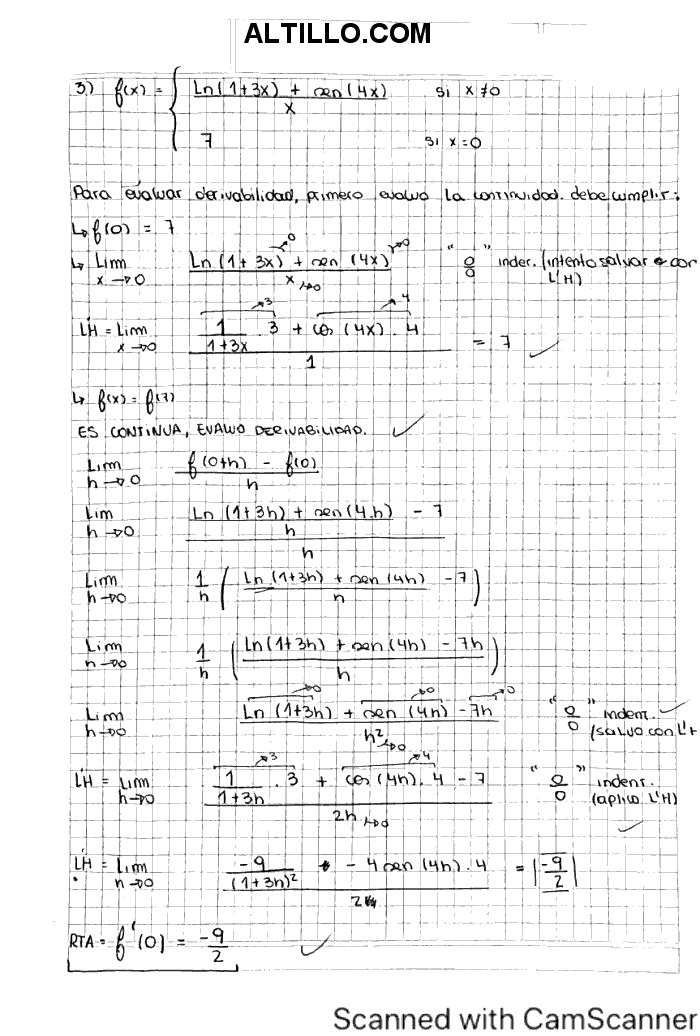 ALTILLO.COM
3) f(x) = { Ln(1+3x) + sen(4x) / x si x≠0
7 si x=0
Para evaluar derivabilidad, primero evaluo la continuidad. debe cumplir:
↳ f(0) = 7
↳ Lim x→0 Ln(1+3x)→0 + sen(4x)→0 / x→0 "0/0" inder. (intento salvar con L'H)
L'H = Lim x→0 1/(1+3x) . 3→3 + cos(4x) . 4→4 / 1 = 7 ✓
↳ f(x) = f(7)
ES CONTINUA, EVALUO DERIVABILIDAD. ✓
Lim h→0 f(0+h) - f(0) / h
Lim h→0 (Ln(1+3h) + sen(4.h) / h - 7) / h
Lim h→0 1/h (Ln(1+3h) + sen(4h) / h - 7)
Lim h→0 1/h (Ln(1+3h) + sen(4h) - 7h / h)
Lim h→0 Ln(1+3h)→0 + sen(4h)→0 - 7h→0 / h²→0 "0/0" indem. ✓ (salvo con L'H
L'H = Lim h→0 1/(1+3h) . 3→3 + cos(4h) . 4→4 - 7 / 2h→0 "0/0" indent. (aplico L'H) ✓
L'H = Lim h→0 -9/(1+3h)² - 4 sen(4h) . 4 / 2 = |-9/2|
RTA = f'(0) = -9/2 ✓
Scanned with CamScanner